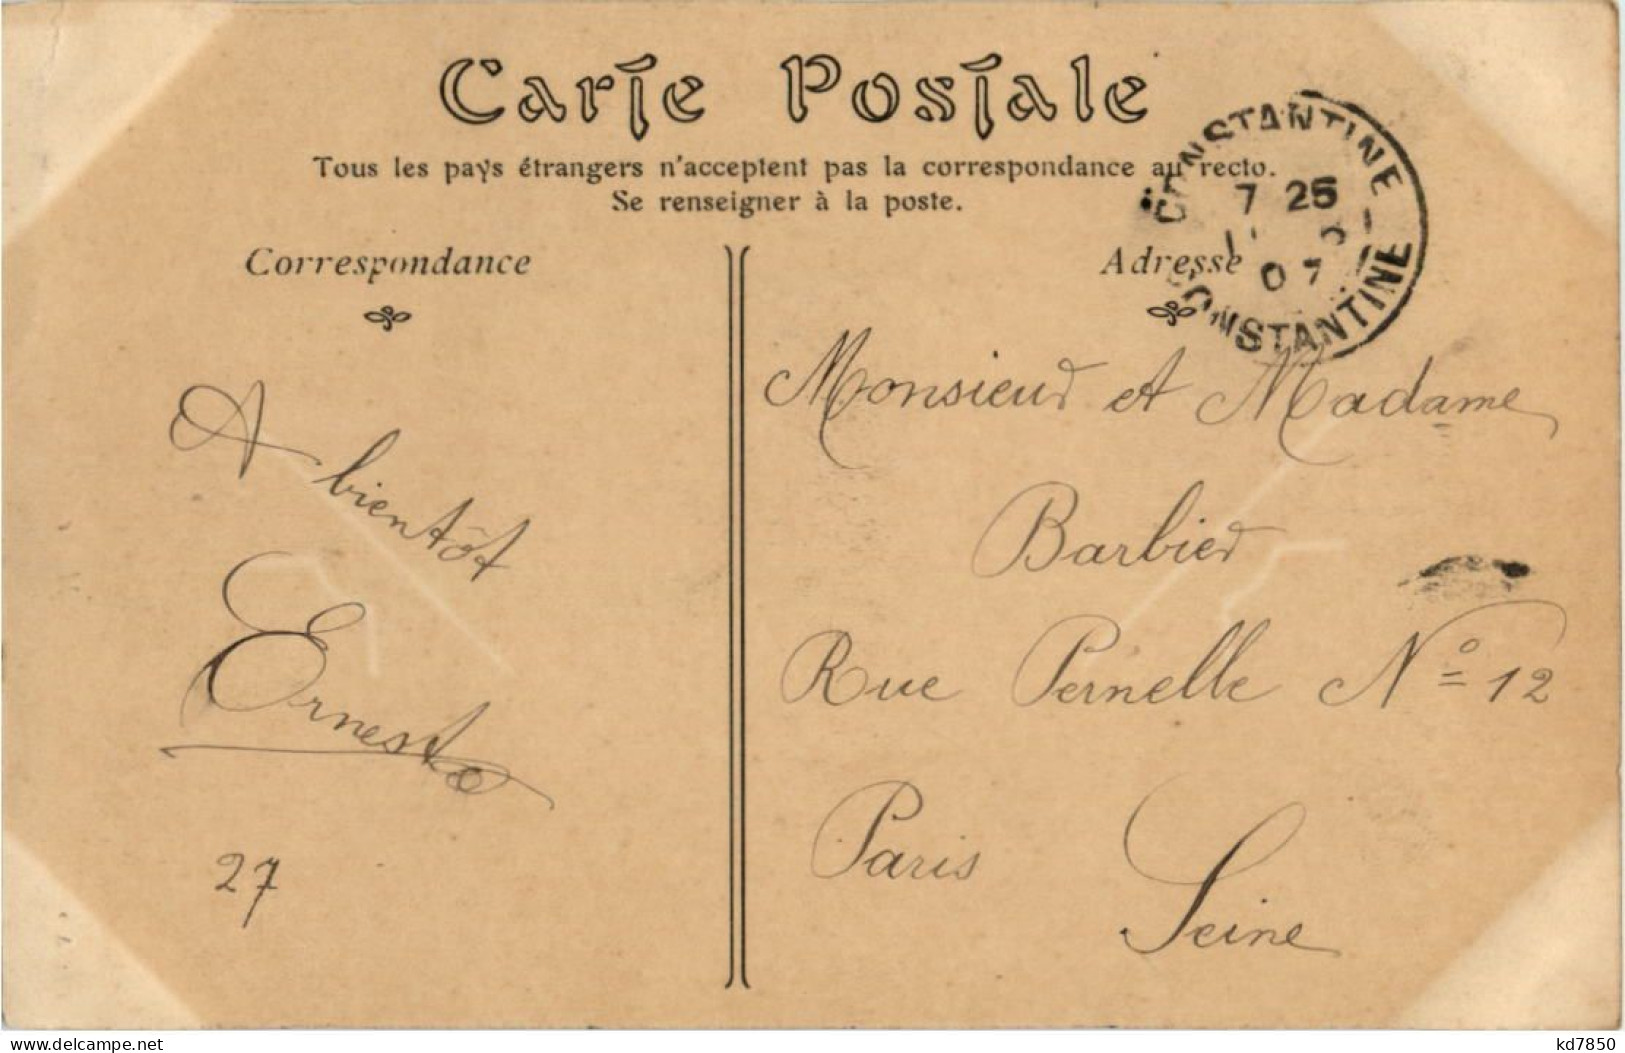 Carte Postale
Tous les pays étrangers n'acceptent pas la correspondance au recto.
Se renseigner à la poste.
Correspondance
Adresse
CONSTANTINE
7 25
07
CONSTANTINE
A bientôt
Ernest
27
Monsieur et Madame
Barbier
Rue Pernelle Nº 12
Paris
Seine
delcampe.net
kd7850